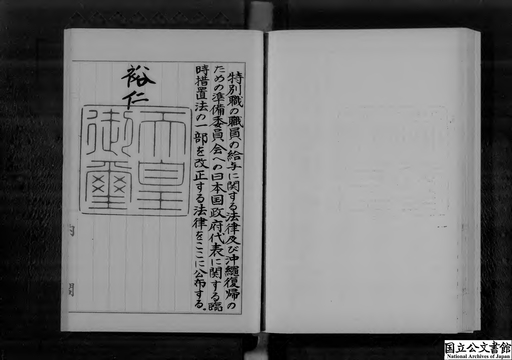 特別職の職員の給与に関する法律及び沖縄復帰の
ための準備委員会への日本国政府代表に関する臨
時措置法の一部を改正する法律をここに公布する。
裕仁
天皇
御璽
国立公文書館
National Archives of Japan